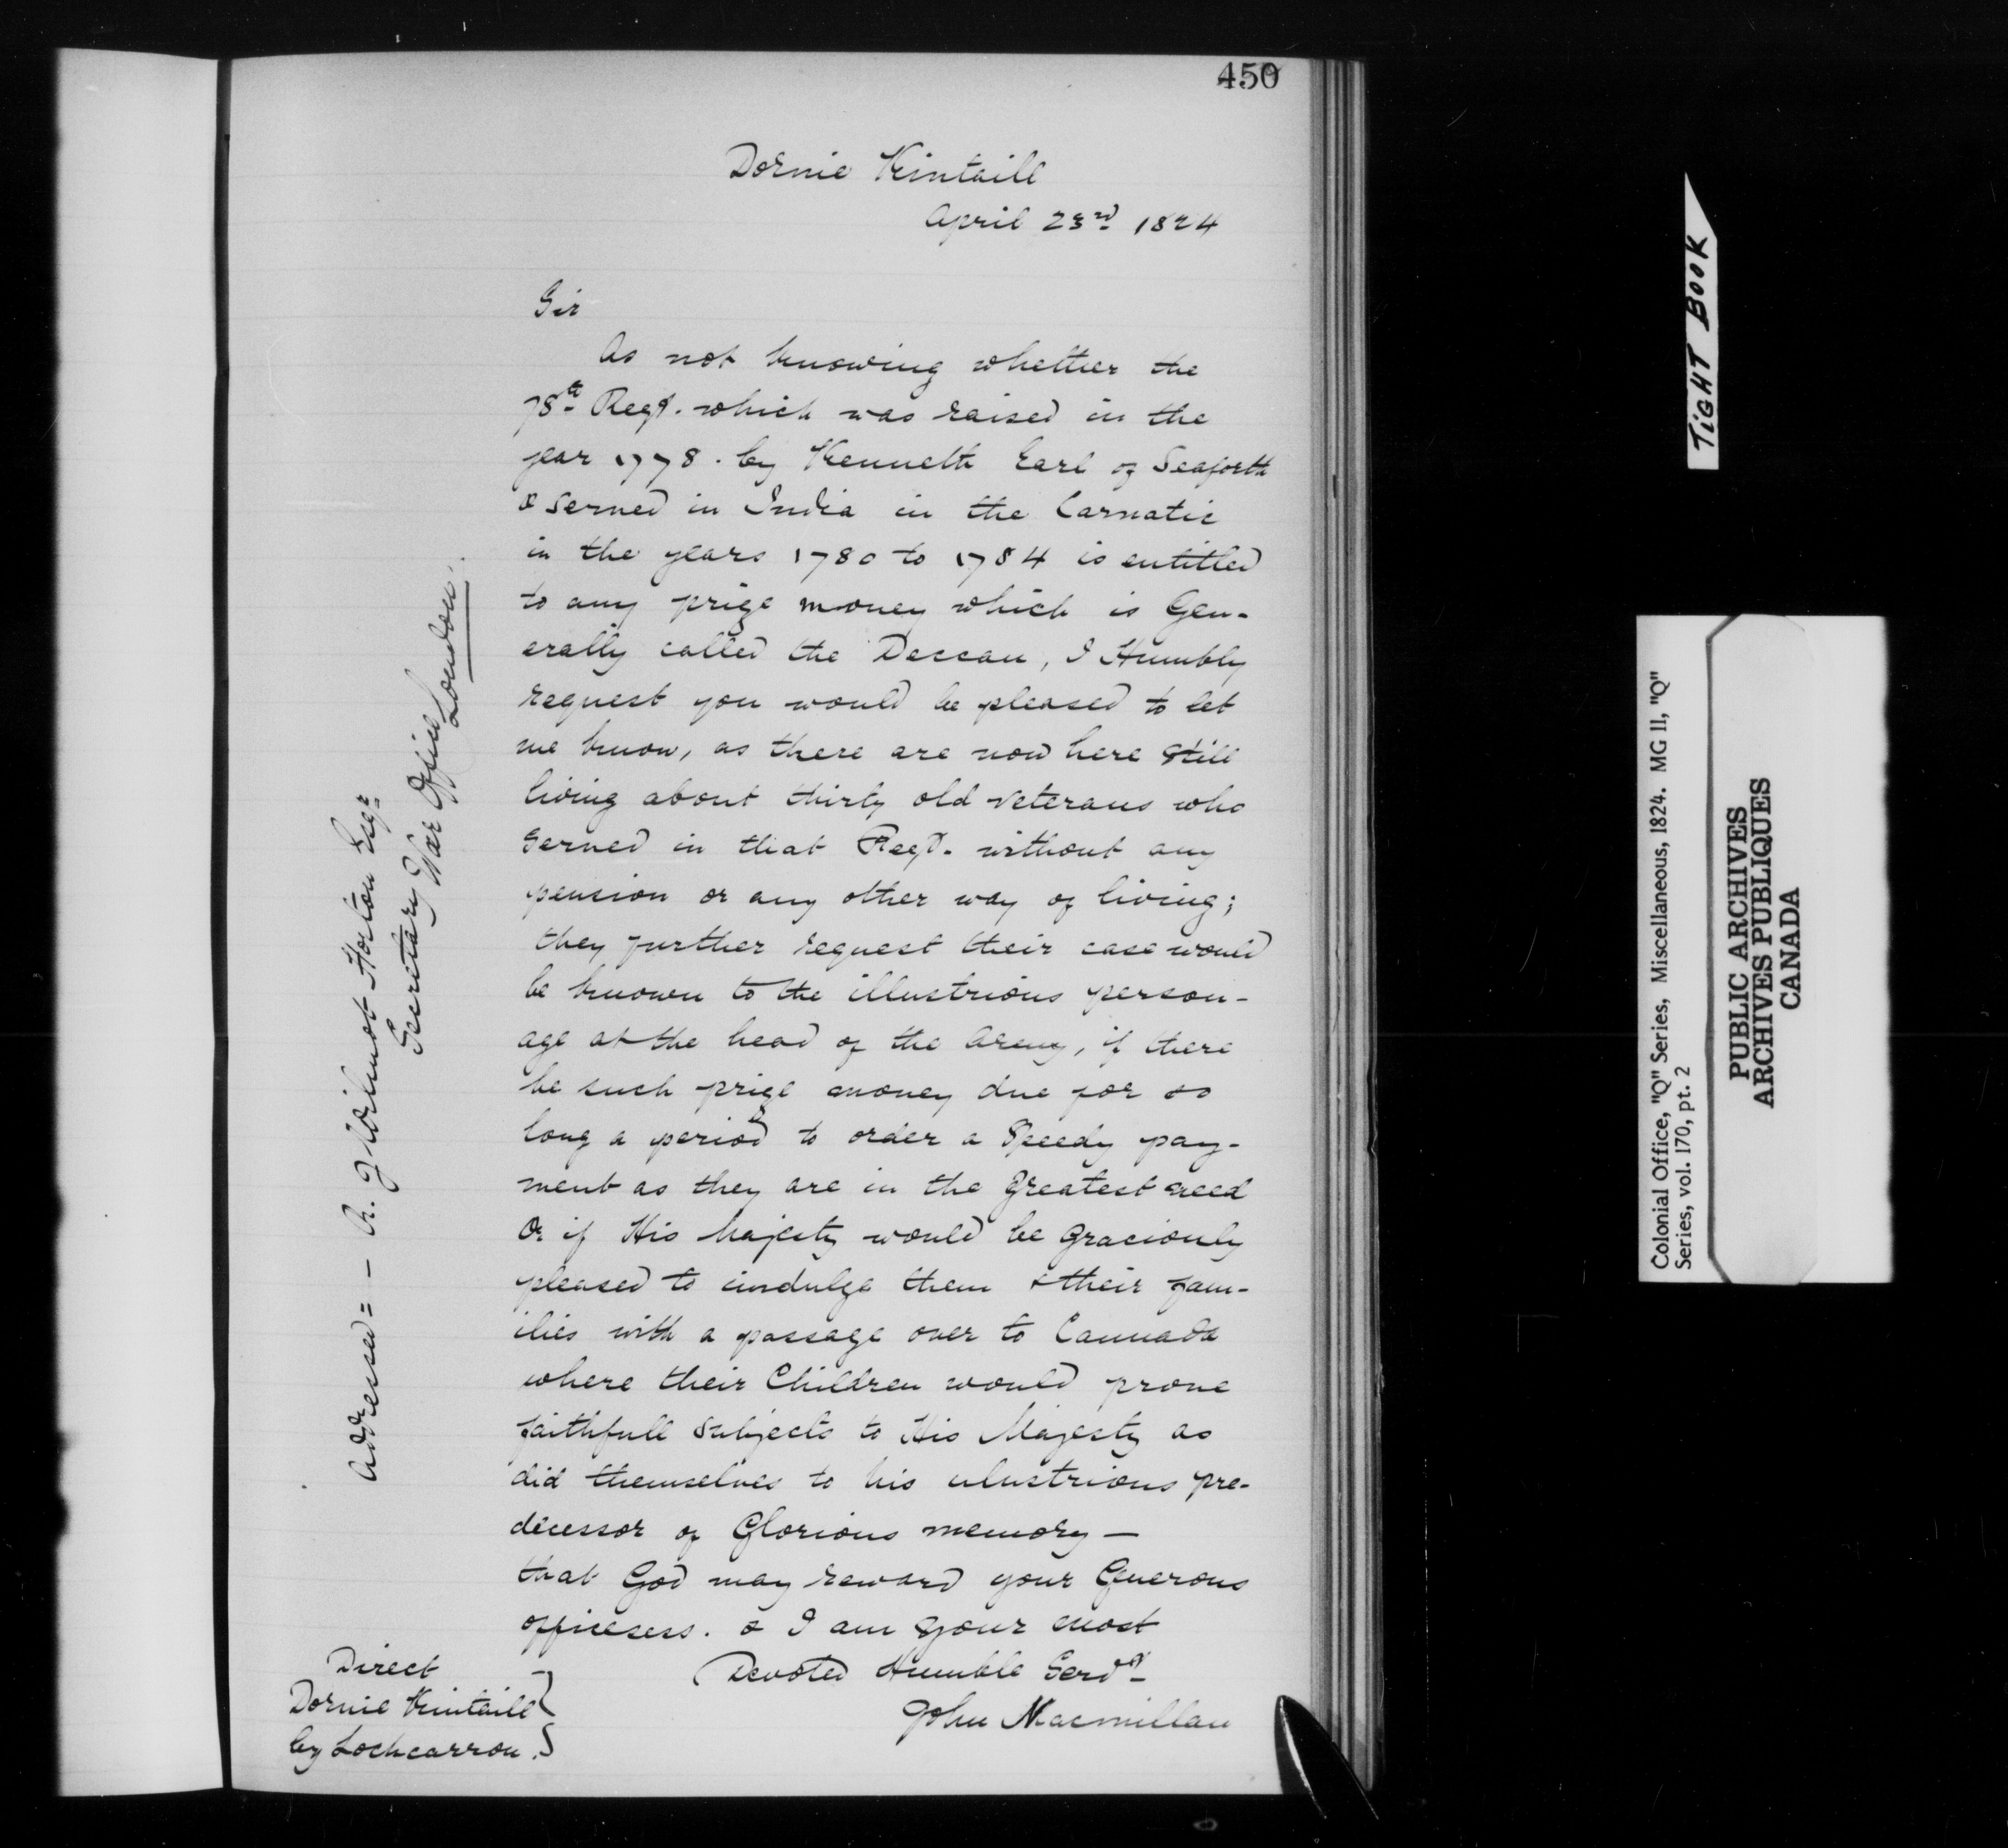 450
Dornie Kintaill
April 23rd 1824
Sir
As not knowing whether the
78th Regt. which was raised in the
year 1778. by Kenneth Earl of Seaforth
& served in India in the Carnatic
in the years 1780 to 1784 is entitled
to any prize money which is Gen-
erally called the Deccan, I Humbly
request you would be pleased to let
me know, as there are now here still
living about thirty old veterans who
served in that Regt. without any
pension or any other way of living;
they further request their case would
be known to the illustrious person-
age at the head of the Army, if there
be such prize money due for so
long a period to order a Speedy pay-
ment as they are in the greatest need
Or if His Majesty would be graciously
pleased to indulge them & their fam-
ilies with a passage over to Cannada
where their Children would prove
faithfull subjects to His Majesty as
did themselves to his ulustrious pre-
decessor of Glorious memory —
that God may reward your Generous
officesess. & I am your most
Devoted Humble Servt
John Macmillan
Direct
Dornie Kintaill
by Lochcarron.
Addressed = — R. J Wilmot Horton Esqr
Secretary War Office
London.
TIGHT BOOK
Colonial Office, "Q" Series, Miscellaneous, 1824. MG 11, "Q"
Series, vol. 170, pt. 2
PUBLIC ARCHIVES
ARCHIVES PUBLIQUES
CANADA